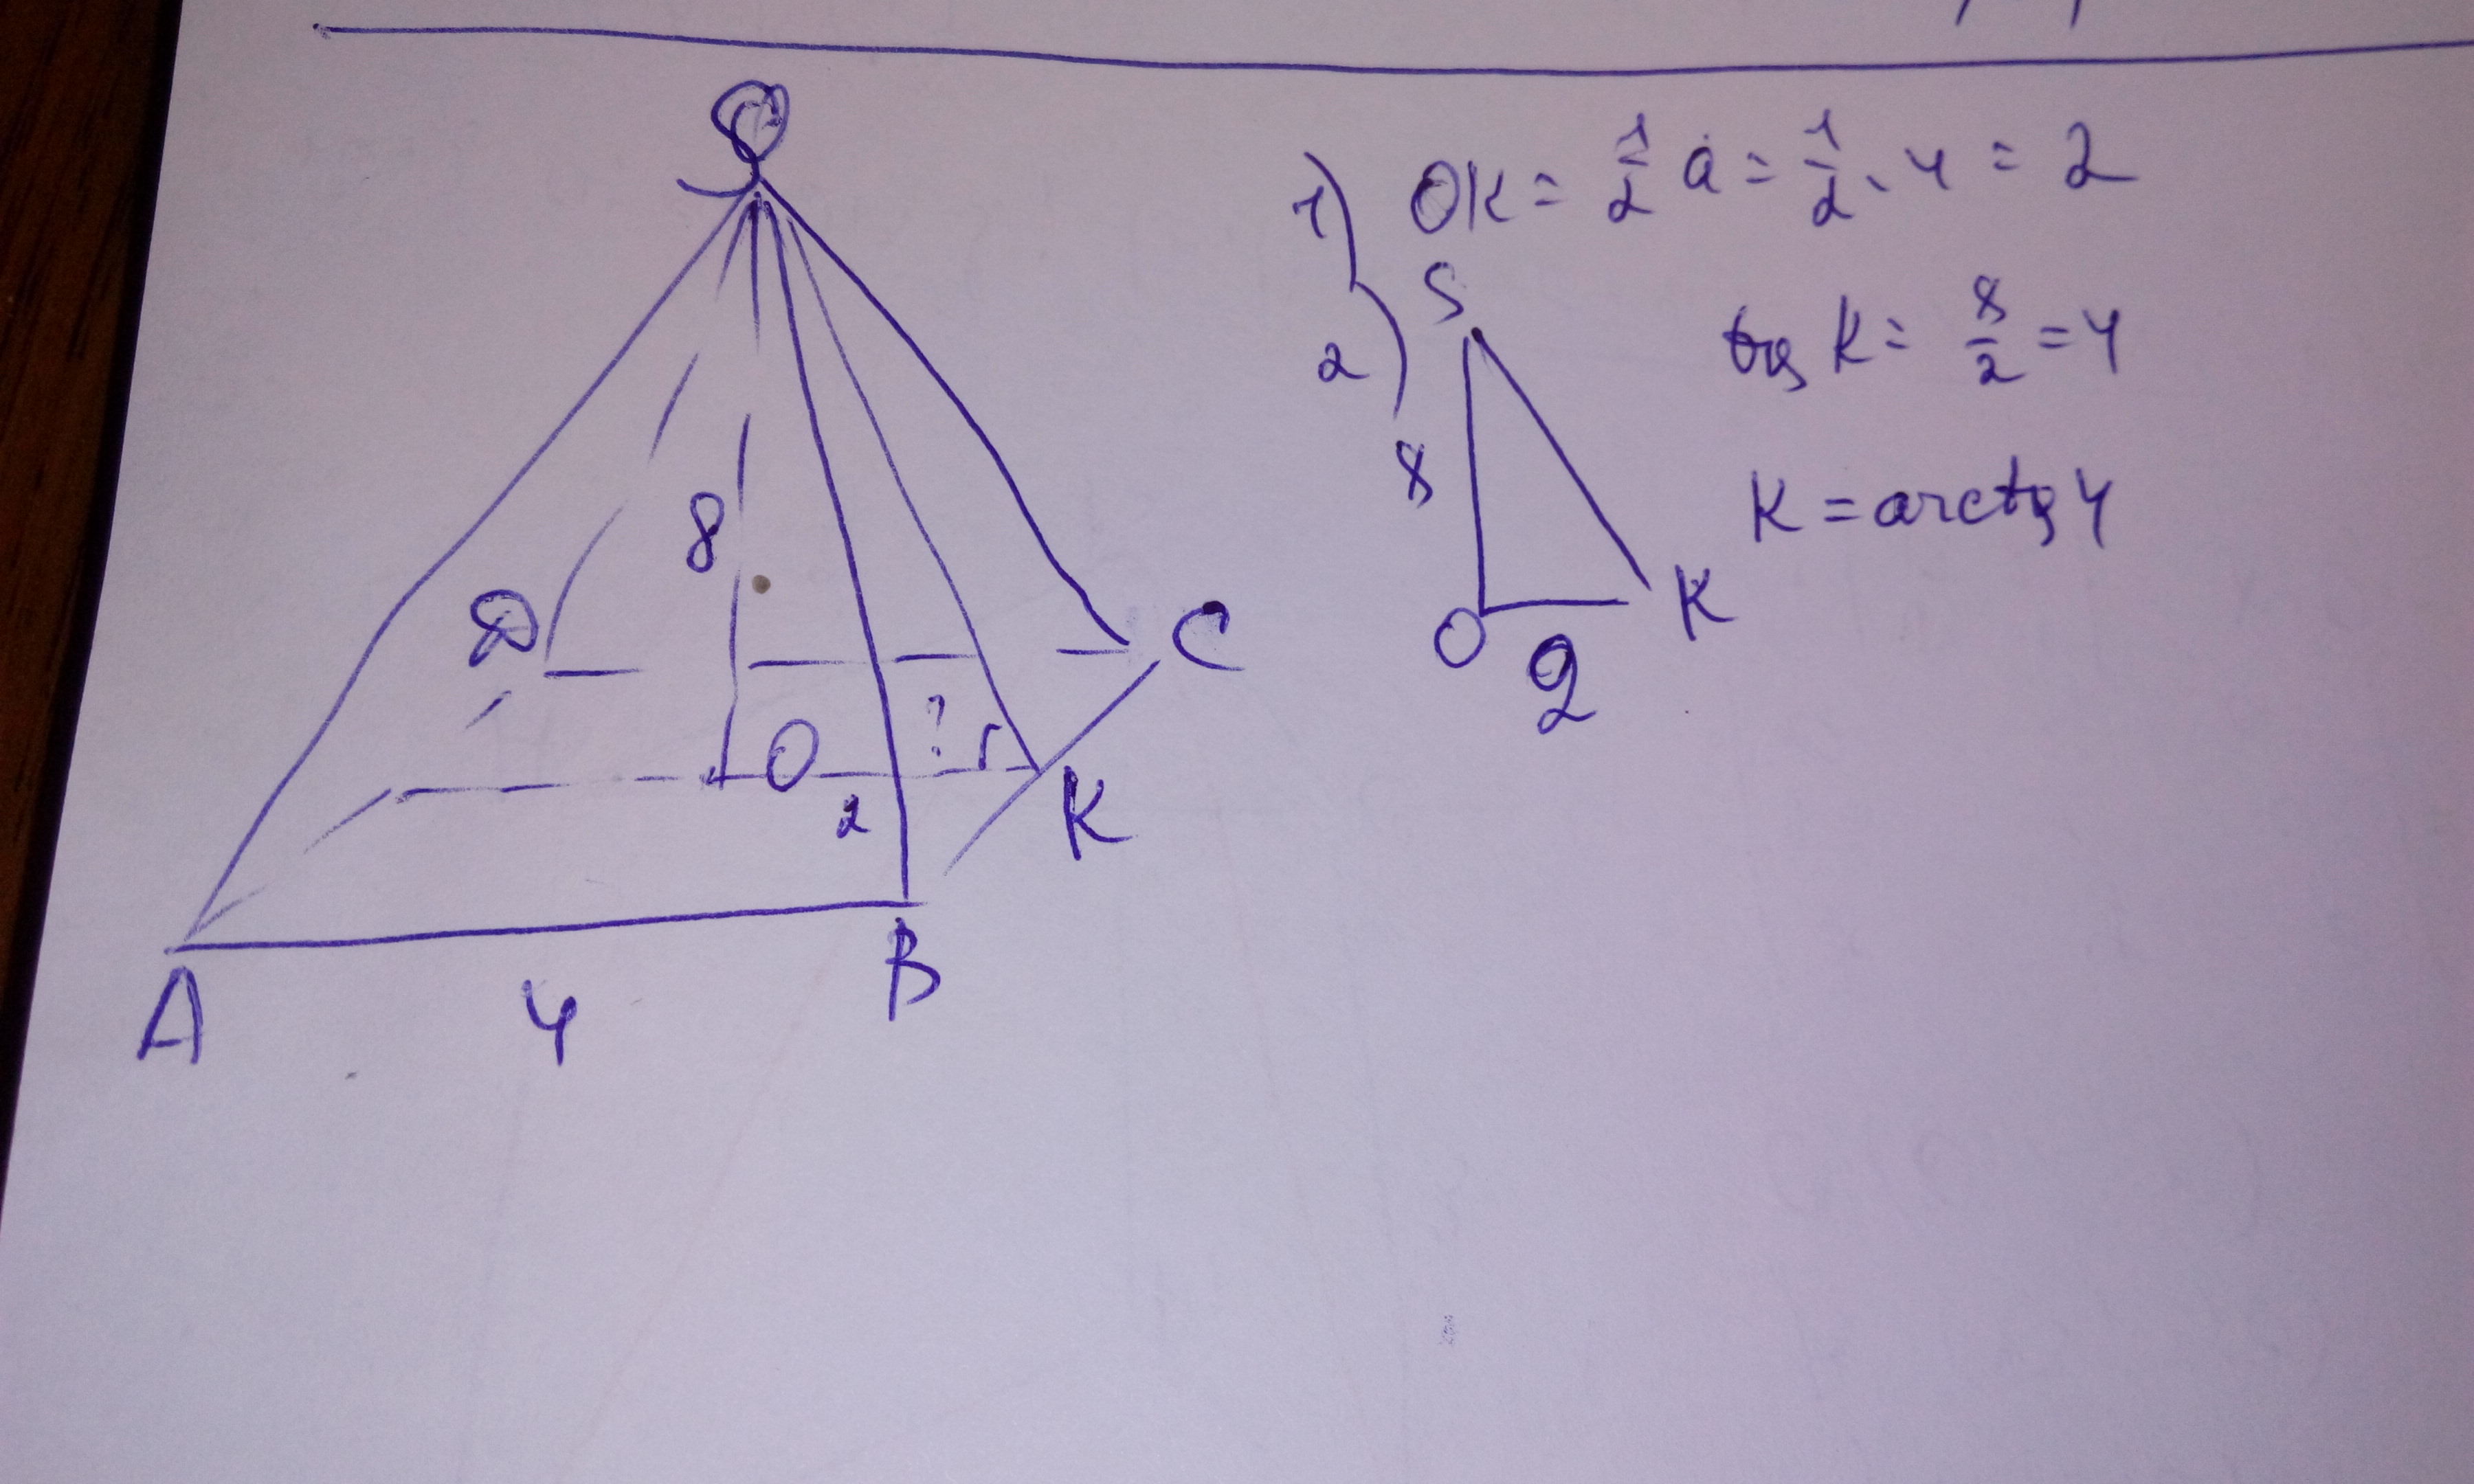 S
1) OK = 1/2 a = 1/2 · 4 = 2
2)
S
tg K = 8/2 = 4
8
K = arctg 4
O
2
K
8
D
C
O
?
2
K
A
4
B